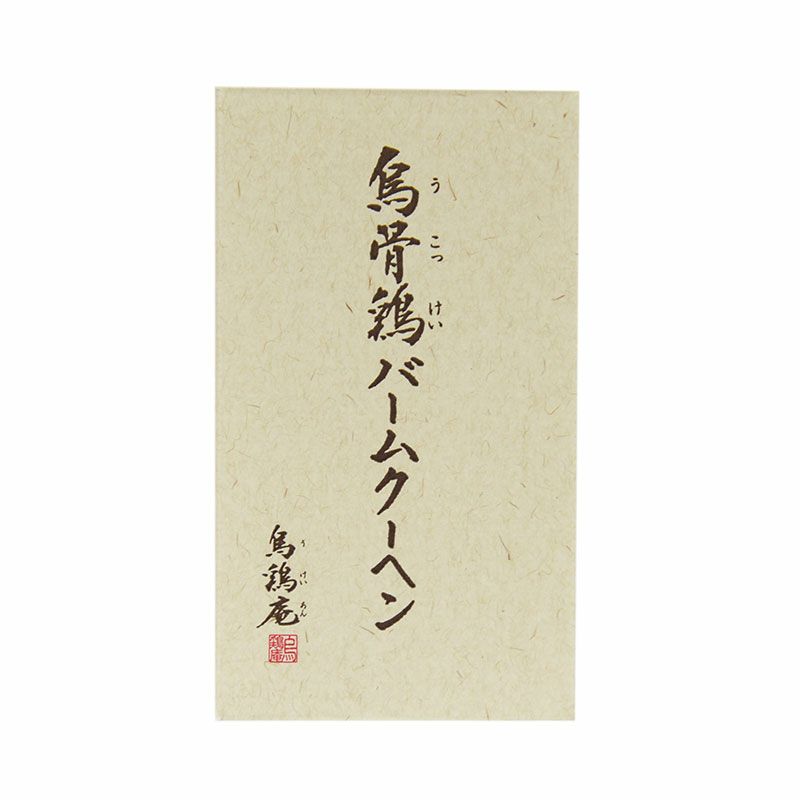 烏骨鶏バームクーヘン
うこっけい
烏鶏庵
うけいあん